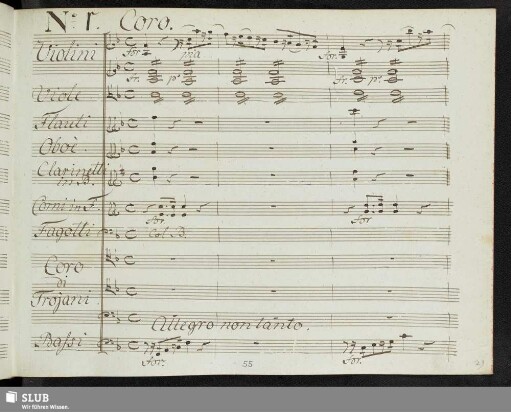 No: 1. Coro.
Violini
for: pia for:
fr: po fr: po
Viole
Flauti
Oboè
Clarinetti
in B.
Corni in F.
for for
Fagotti Col B.
Coro
di
Trojani
Allegro non tanto.
Bassi
for: for:
55
SLUB
Wir führen Wissen.